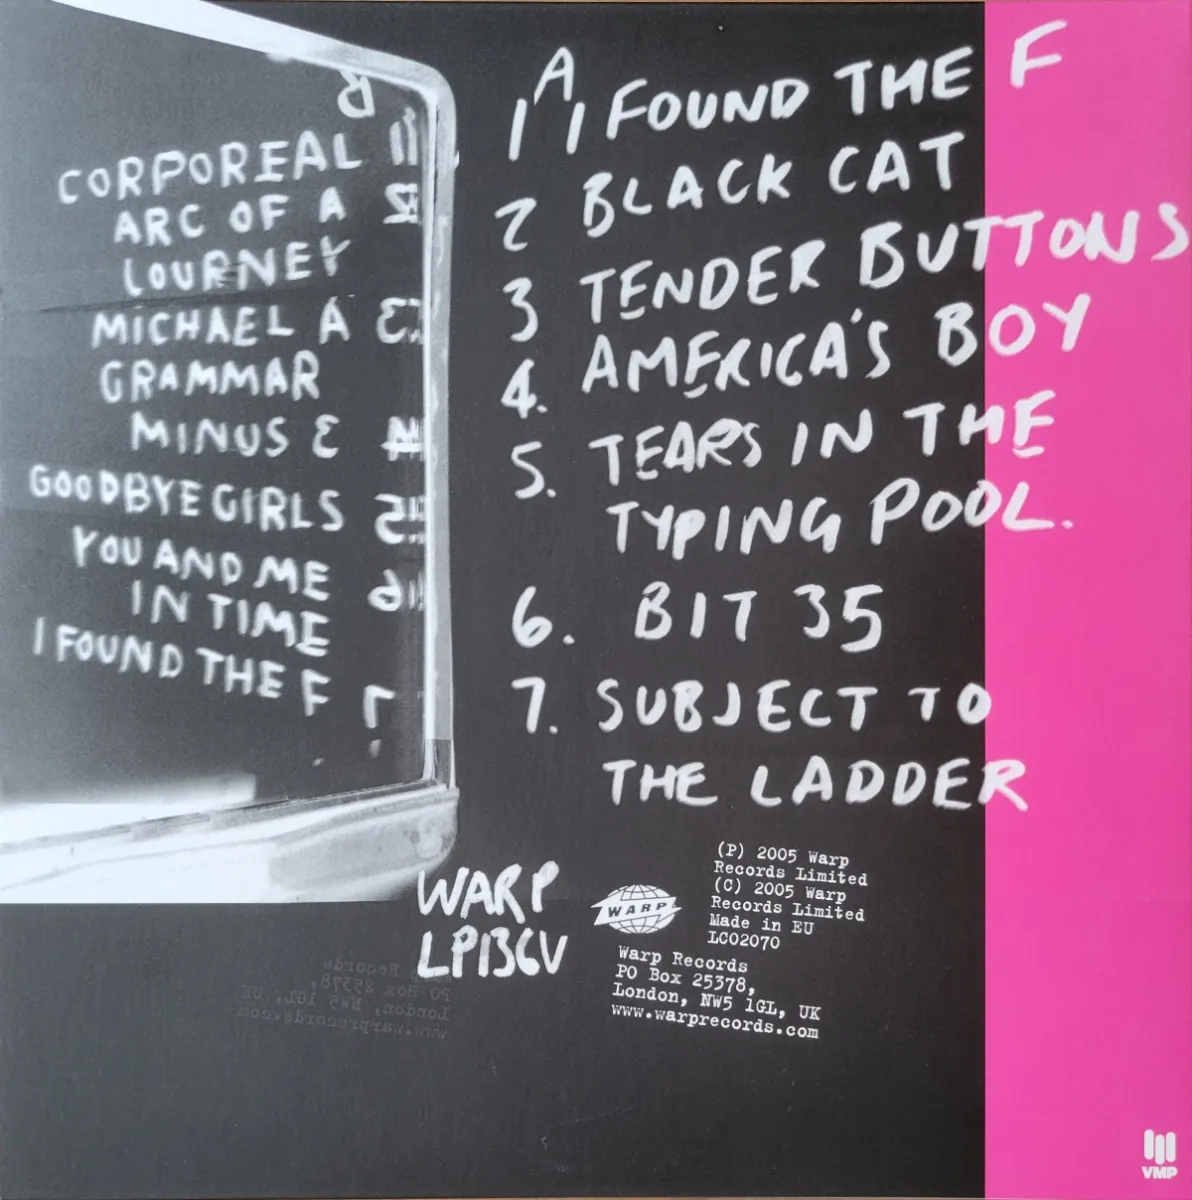 B
CORPOREAL 1
ARC OF A 2
JOURNEY
MICHAEL A 3
GRAMMAR
MINUS 3 4
GOODBYE GIRLS 5
YOU AND ME 6
IN TIME
I FOUND THE F 7
A
1 I FOUND THE F
2 BLACK CAT
3 TENDER BUTTONS
4. AMERICA'S BOY
5. TEARS IN THE
TYPING POOL.
6. BIT 35
7. SUBJECT TO
THE LADDER
WARP
LP136V
WARP
(P) 2005 Warp
Records Limited
(C) 2005 Warp
Records Limited
Made in EU
LC02070
Warp Records
PO Box 25378,
London, NW5 1GL, UK
www.warprecords.com
Warp Records
PO Box 25378,
London, NW5 1GL, UK
www.warprecords.com
VMP